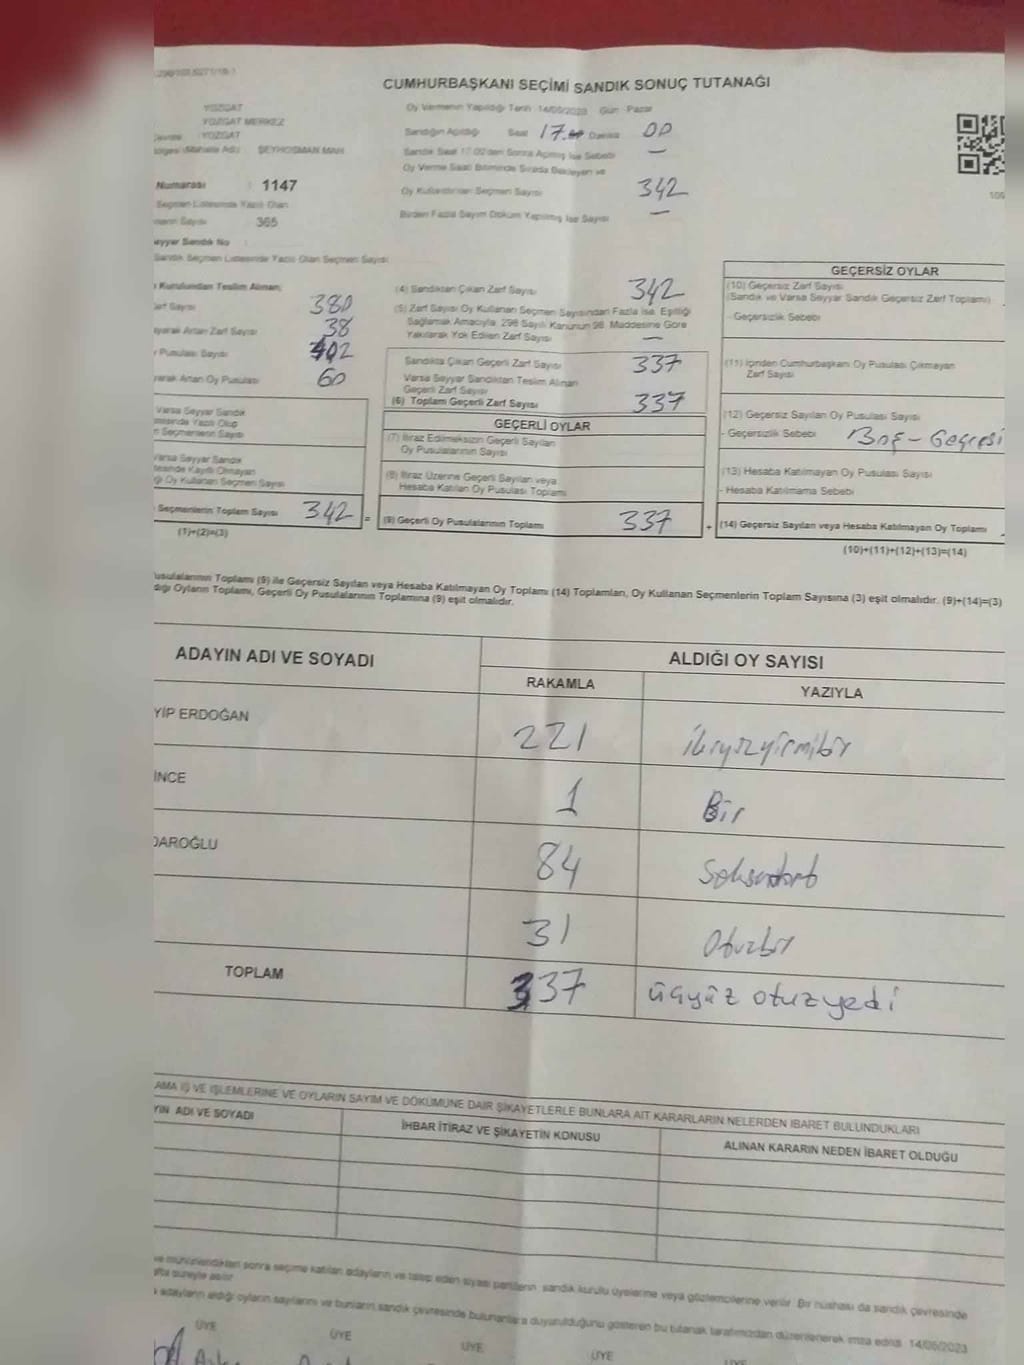 CUMHURBAŞKANI SEÇİMİ SANDIK SONUÇ TUTANAĞI
YOZGAT
YOZGAT MERKEZ
YOZGAT
ŞEYHOSMAN MAH.
Numarası : 1147
Seçmen Listesinde Yazılı Olan
Sayısı 365
Seyyar Sandık No
Sandık Seçmen Listesinde Yazılı Olan Seçmen Sayısı
Oy Vermenin Yapıldığı Tarih : 14/05/2023 Gün : Pazar
Sandığın Açıldığı Saat 17.00 Dakika 00
Sandık Saat 17.00'den Sonra Açılmış İse Sebebi —
Oy Verme Saati Bitiminde Sırada Bekleyen ve
Oy Kullandırılan Seçmen Sayısı 342
Birden Fazla Sayım Döküm Yapılmış İse Sayısı —
Kurulundan Teslim Alınan;
Zarf Sayısı 380
Artan Zarf Sayısı 38
Pusulası Sayısı 402
Artan Oy Pusulası 60
Varsa Seyyar Sandık
Yazılı Olup
Seçmenlerin Sayısı
Varsa Seyyar Sandık
Kayıtlı Olmayan
Oy Kullanan Seçmen Sayısı
Seçmenlerin Toplam Sayısı 342 =
(1)+(2)=(3)
(4) Sandıktan Çıkan Zarf Sayısı 342
(5) Zarf Sayısı Oy Kullanan Seçmen Sayısından Fazla İse, Eşitliği
Sağlamak Amacıyla, 298 Sayılı Kanunun 98. Maddesine Göre
Yakılarak Yok Edilen Zarf Sayısı —
Sandıkta Çıkan Geçerli Zarf Sayısı 337
Varsa Seyyar Sandıktan Teslim Alınan
Geçerli Zarf Sayısı
(6) Toplam Geçerli Zarf Sayısı 337
GEÇERLİ OYLAR
(7) İtiraz Edilmeksizin Geçerli Sayılan
Oy Pusulalarının Sayısı
(8) İtiraz Üzerine Geçerli Sayılan veya
Hesaba Katılan Oy Pusulası Toplamı
(9) Geçerli Oy Pusulalarının Toplamı 337 +
GEÇERSİZ OYLAR
(10) Geçersiz Zarf Sayısı
(Sandık ve Varsa Seyyar Sandık Geçersiz Zarf Toplamı)
- Geçersizlik Sebebi
(11) İçinden Cumhurbaşkanı Oy Pusulası Çıkmayan
Zarf Sayısı
(12) Geçersiz Sayılan Oy Pusulası Sayısı
- Geçersizlik Sebebi Boş -
(13) Hesaba Katılmayan Oy Pusulası Sayısı
- Hesaba Katılmama Sebebi
(14) Geçersiz Sayılan veya Hesaba Katılmayan Oy Toplamı
(10)+(11)+(12)+(13)=(14)
Toplamı (9) ile Geçersiz Sayılan veya Hesaba Katılmayan Oy Toplamı (14) Toplamları, Oy Kullanan Seçmenlerin Toplam Sayısına (3) eşit olmalıdır. (9)+(14)=(3)
Oyların Toplamı, Geçerli Oy Pusulalarının Toplamına (9) eşit olmalıdır.
ADAYIN ADI VE SOYADI
ALDIĞI OY SAYISI
RAKAMLA YAZIYLA
YİP ERDOĞAN 221 ikiyüzyirmibir
İNCE 1 Bir
DAROĞLU 84 Seksendört
31 Otuzbir
TOPLAM 337 üçyüz otuzyedi
AMA İŞ VE İŞLEMLERİNE VE OYLARIN SAYIM VE DÖKÜMÜNE DAİR ŞİKAYETLERLE BUNLARA AİT KARARLARIN NELERDEN İBARET BULUNDUKLARI
YIN ADI VE SOYADI İHBAR İTİRAZ VE ŞİKAYETİN KONUSU ALINAN KARARIN NEDEN İBARET OLDUĞU
ve mühürlendikten sonra seçime katılan adayların ve talep eden siyasi partilerin sandık kurulu üyelerine veya gözlemcilerine verilir. Bir nüshası da sandık çevresinde
süreyle asılır.
adayların aldığı oyların sayılarını ve bunların sandık çevresinde bulunanlara duyurulduğunu gösteren bu tutanak tarafımızdan düzenlenerek imza edildi. 14/05/2023
ÜYE ÜYE ÜYE ÜYE ÜYE